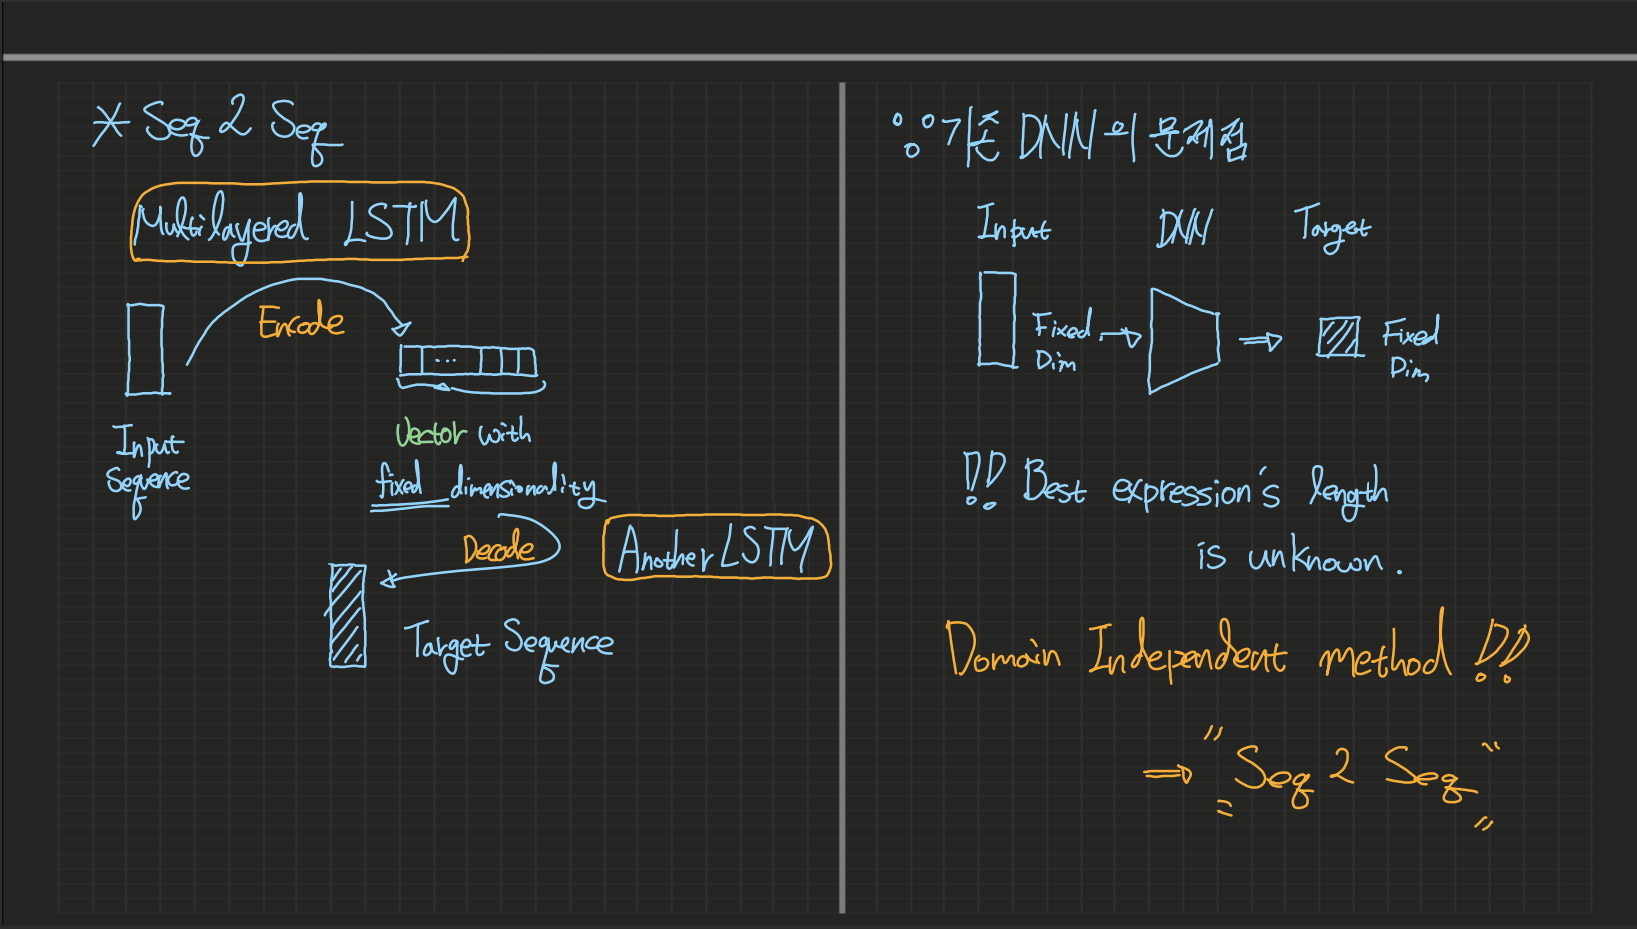 * Seq 2 Seq
Multilayered LSTM
Encode
...
Input
Sequence
Vector with
fixed dimensionality
Decode
Another LSTM
Target Sequence
∵ 기존 DNN의 문제점
Input DNN Target
Fixed
Dim
Fixed
Dim
!! Best expression's length
is unknown.
Domain Independent method !!
⇒ "Seq 2 Seq"